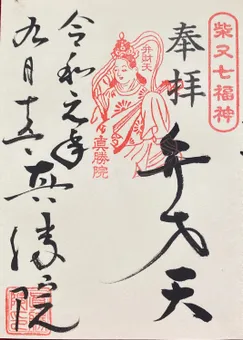 柴又七福神
奉拝
弁才天
弁財天
真勝院
令和元年
九月十五
真勝院